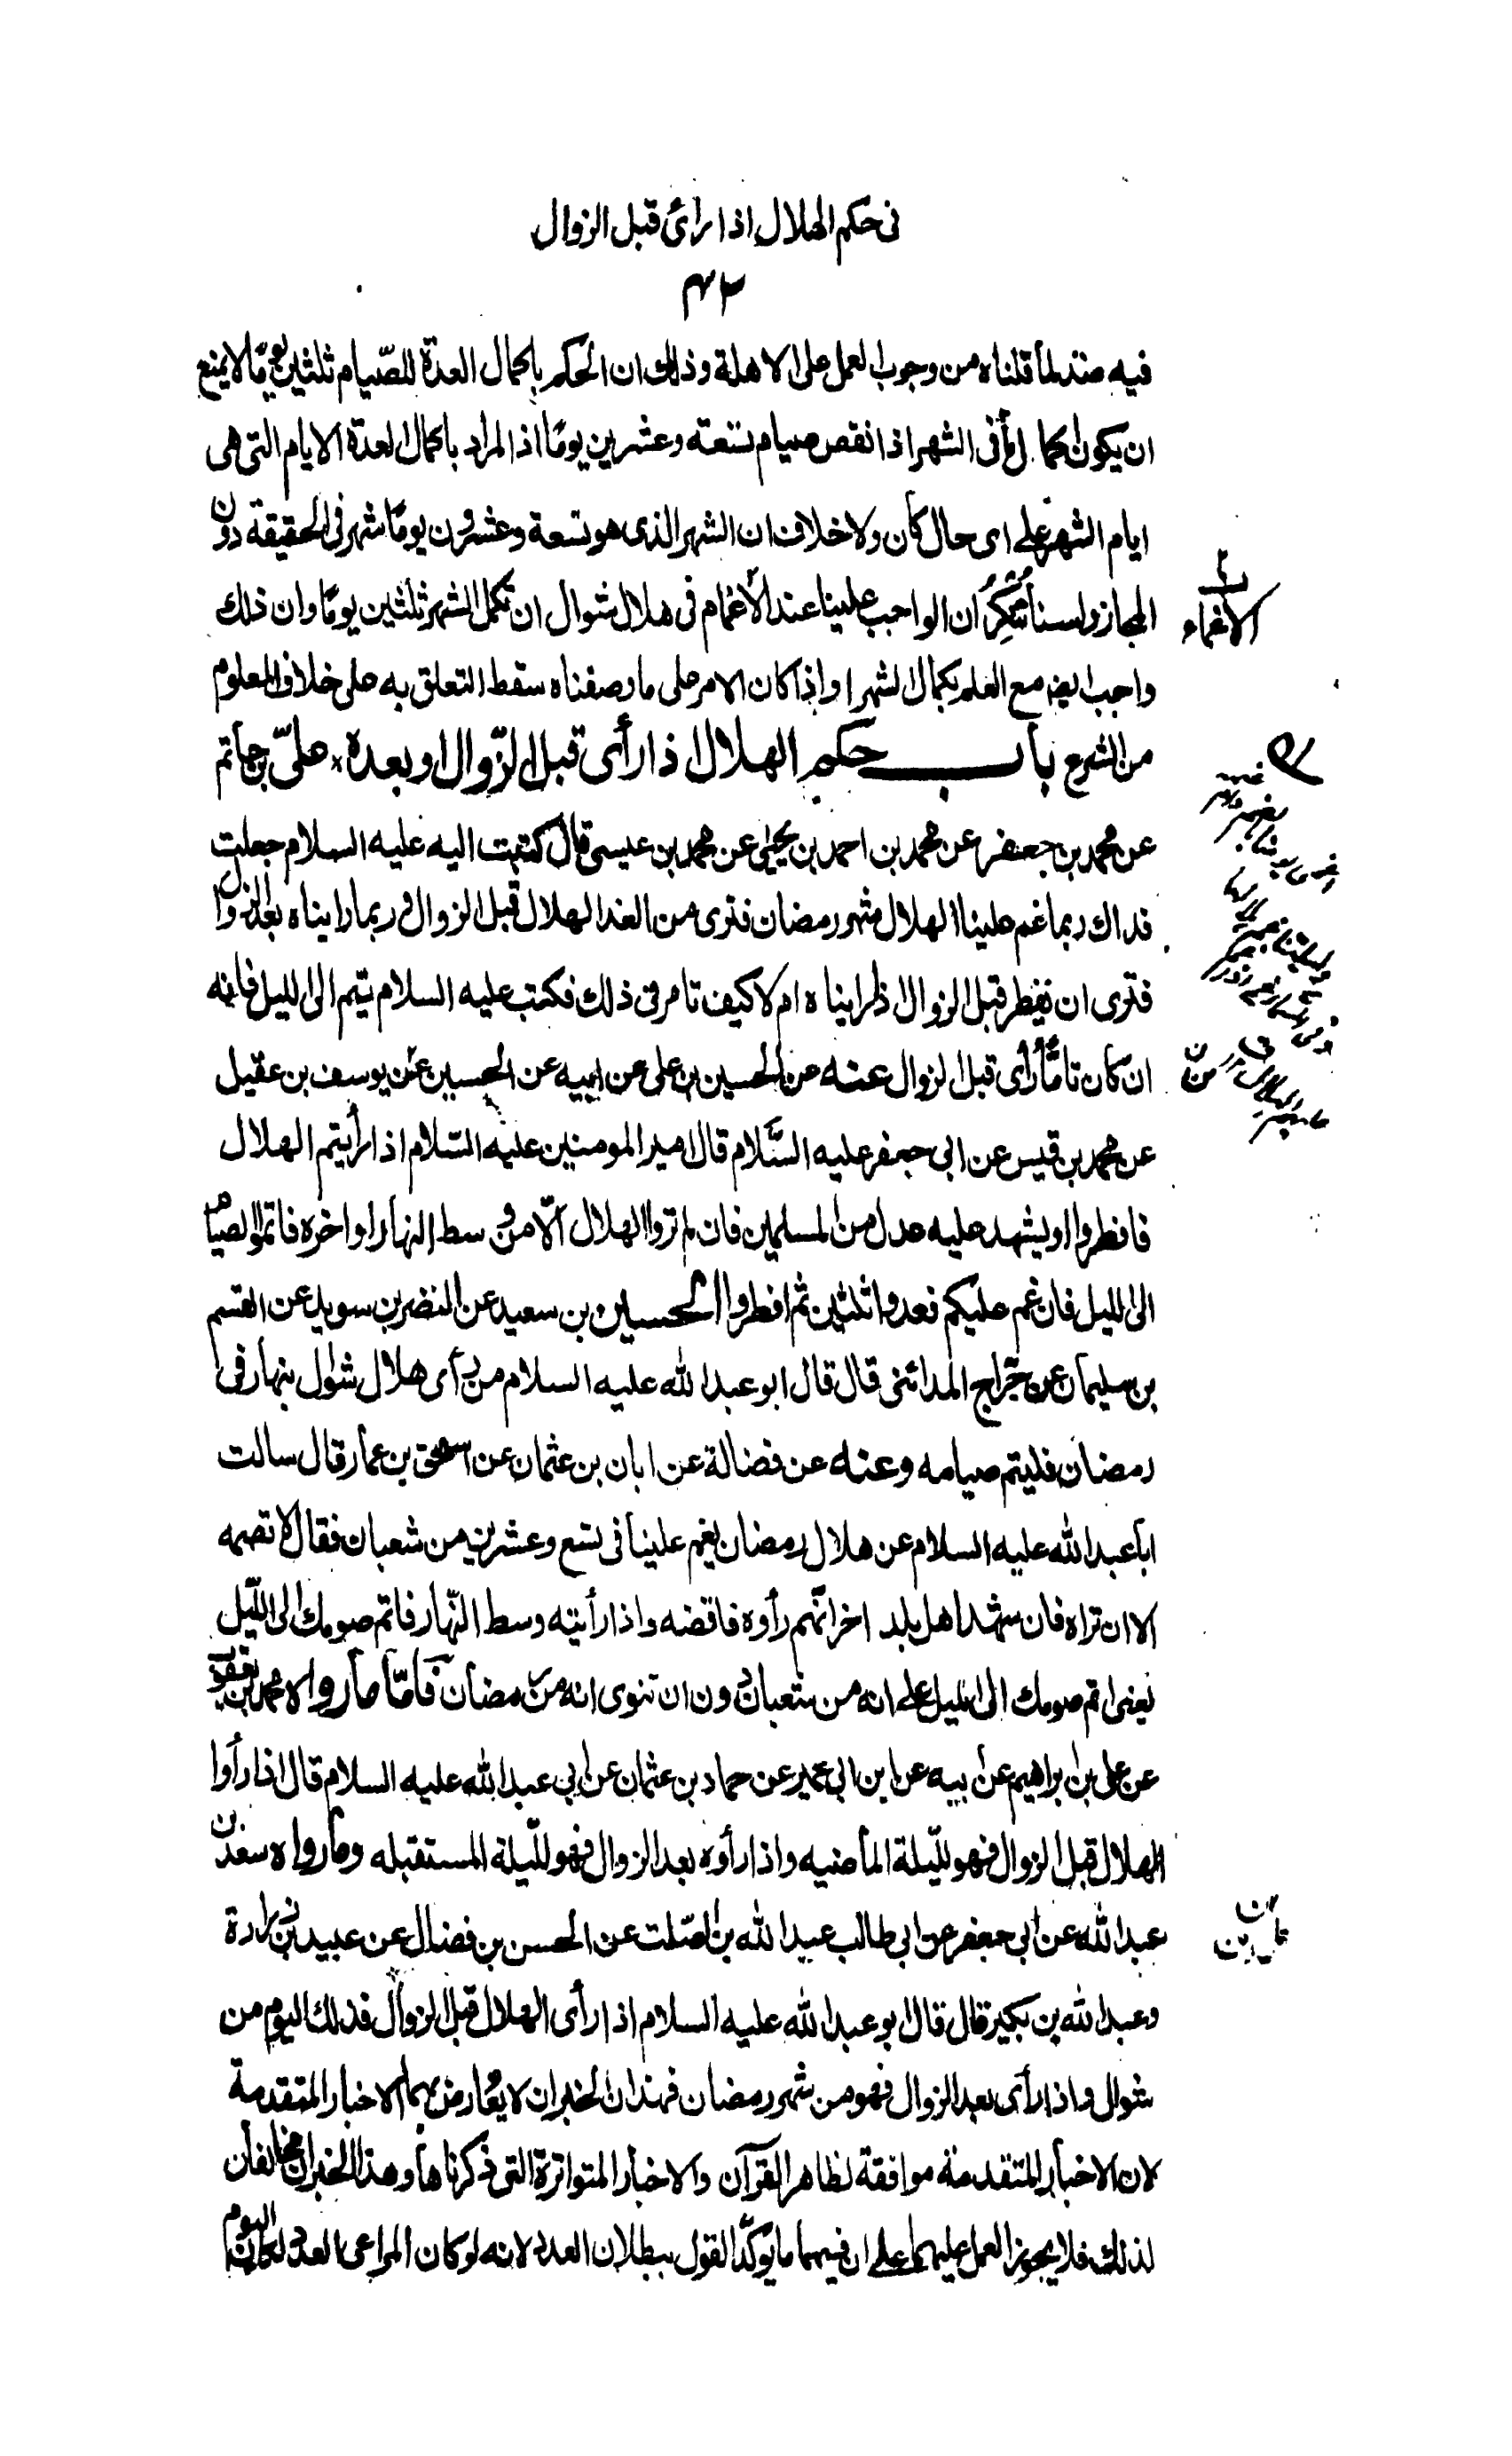 في حكم الهلال اذا رائ قبل الزوال
٤٢
فيه ضد لما قلناه من وجوب العمل على الاهلة وذلك ان الحكم باكمال العدة للصّيام ثلثين يومًا لا يمنع
ان يكون اكمالها في الشهر اذا نقص صيام تسعة وعشرين يومًا اذ المراد باكمال العدة الايام التى هى
ايام الشهر على اى حال كان ولا خلاف ان الشهر الذى هو تسعة وعشرون يومًا شهر فى الحقيقة دون
المجاز ولسنا ننكر ان الواجب علينا عند الاغمام فى هلال شوال ان نكمل الشهر ثلثين يومًا وان ذلك
واجب ايضا مع العلم بكمال الشهر واذا كان الامر على ما وصفناه سقط التعلق به على خلاف المعلوم
من الشرع باب حكم الهلال اذا رأى قبل الزّوال او بعده علىّ بن حاتم
عن محمد بن جعفر عن محمد بن احمد بن يحيى عن محمد بن عيسى قال كتبت اليه عليه السلام جعلت
فداك ربما غم علينا الهلال شهر رمضان فترى من الغد الهلال قبل الزوال وربما رايناه بعد الزوال
فترى ان نفطر قبل الزوال اذا رايناه ام لا كيف تامر فى ذلك فكتب عليه السلام تتم الى الليل فانه
ان كان تامًّا رأى قبل الزوال عنه عن الحسين بن على عن ابيه عن الحسين عن يوسف بن عقيل
عن محمد بن قيس عن ابى جعفر عليه السَّلام قال امير المومنين عليه السّلام اذا رأيتم الهلال
فافطروا او يشهد عليه عدل من المسلمين فان لم تروا الهلال الّا من وسط النهار او اخره فاتموا الصيام
الى الليل فان غم عليكم فعدوا ثلثين ثم افطروا الحسين بن سعيد عن النضر بن سويد عن القسم
بن سليمان عن جرّاح المدائنى قال قال ابو عبد الله عليه السلام من رأى هلال شوال بنهار فى
رمضان فليتم صيامه وعنه عن فضالة عن ابان بن عثمان عن اسحق بن عمار قال سالت
ابا عبد الله عليه السلام عن هلال رمضان يغم علينا فى تسع وعشرين من شعبان فقال لا تصمه
الا ان تراه فان شهد اهل بلد اخر انّهم رأوه فاقضه واذا رأيته وسط النّهار فاتم صومك الى اللّيل
يعنى اتم صومك الى الليل على انه من شعبان دون ان تنوى انه من رمضان فأمّا ما رواه محمد بن يعقوب
عن على بن ابراهيم عن ابيه عن ابن ابى عمير عن حماد بن عثمان عن ابى عبد الله عليه السلام قال اذا رأوا
الهلال قبل الزوال فهو للّيلة الماضيه واذا رأوه بعد الزوال فهو للّيلة المستقبله وما رواه سعد بن
عبد الله عن ابى جعفر عن ابى طالب عبد الله بن الصّلت عن الحسن بن فضال عن عبيد بن زرارة
وعبد الله بن بكير قال قال ابو عبد الله عليه السلام اذا رأى الهلال قبل الزوال فذلك اليوم من
شوال واذا رأى بعد الزوال فهو من شهر رمضان فهذان الخبران لا يعارض بهما الاخبار المتقدمة
لان الاخبار المتقدمة موافقة لظاهر القرآن والاخبار المتواترة التى ذكرناها وهذا الخبران مخالفان
لذلك فلا يجوز العمل عليهما على ان فيهما ما يؤكّد القول ببطلان العدد لانه لو كان المراعى العدد لكان اليوم
الاغماء